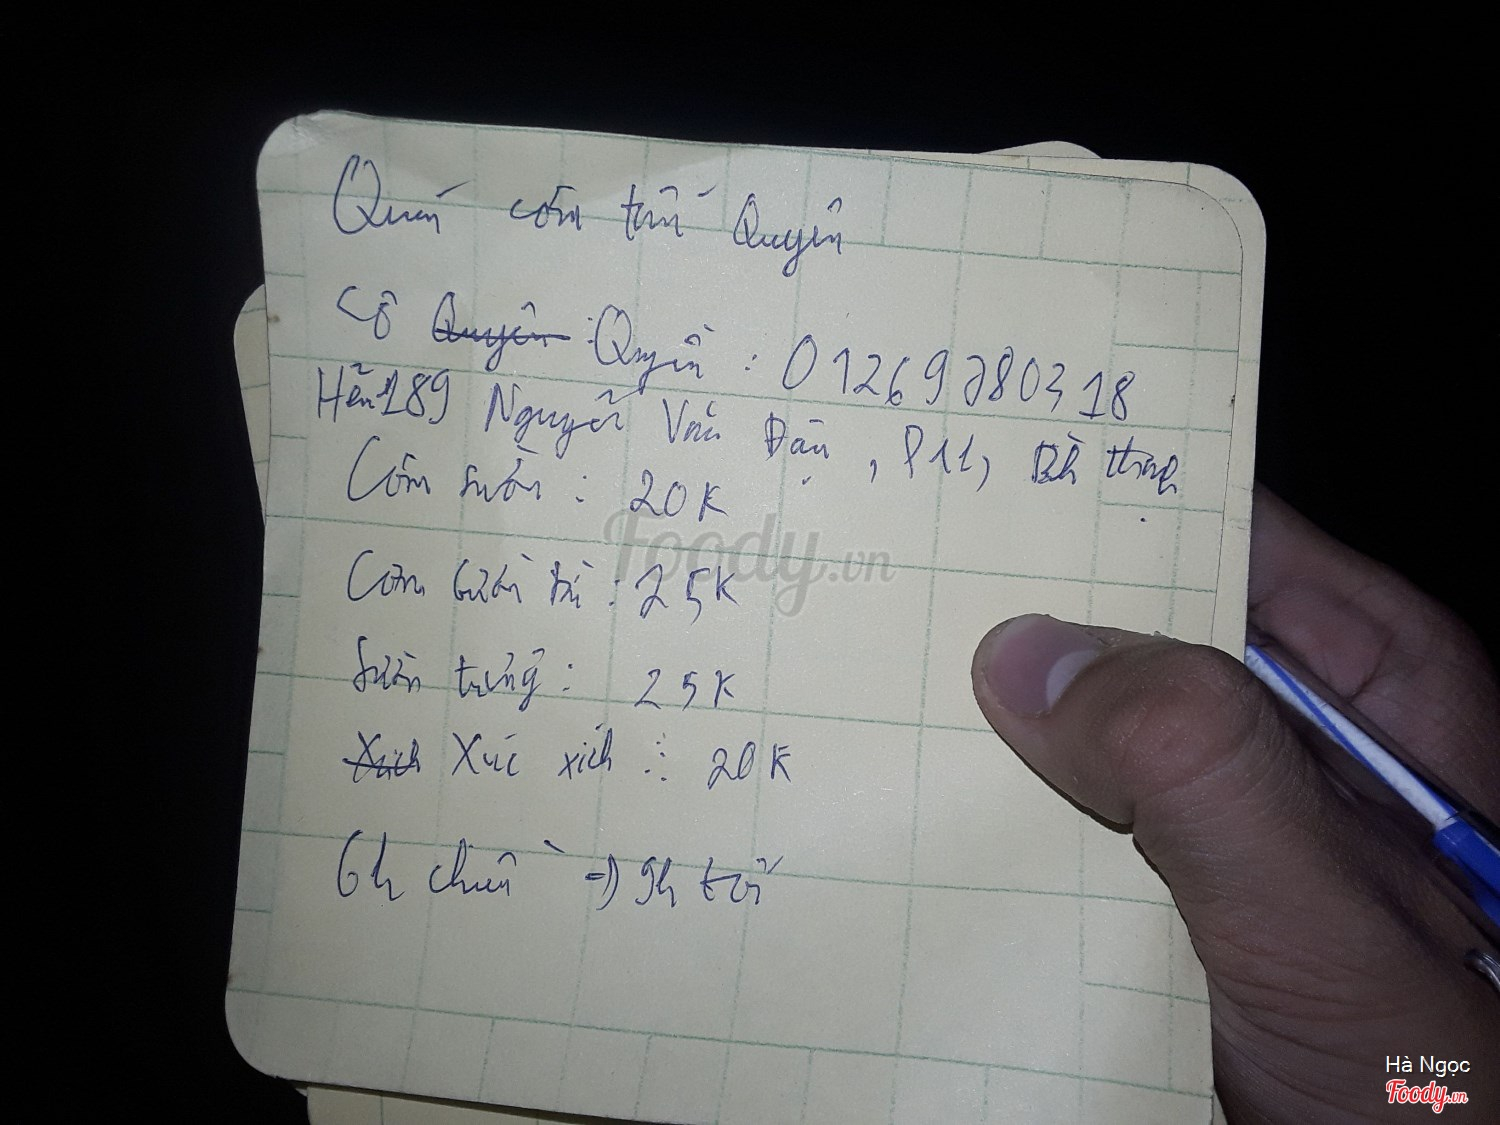 Quán cơm tấm Quyên
Cô Quyên : Quyền : 01269780318
Hẻm 189 Nguyễn Văn Đậu, P11, Bình Thạnh
Cơm sườn : 20K
Cơm sườn bì : 25K
Sườn trứng : 25K
Xích Xúc xích : 20K
6h chiều => 9h tối
Foody.vn
Hà Ngọc
Foody.vn